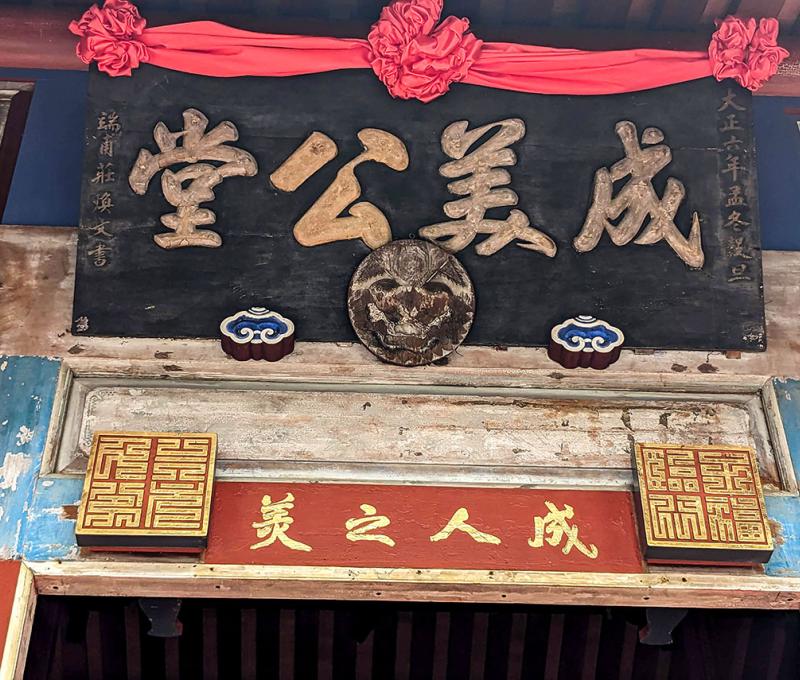 大正六年孟冬穀旦
成美公堂
端甫莊煥文書
五福臨門
成人之美